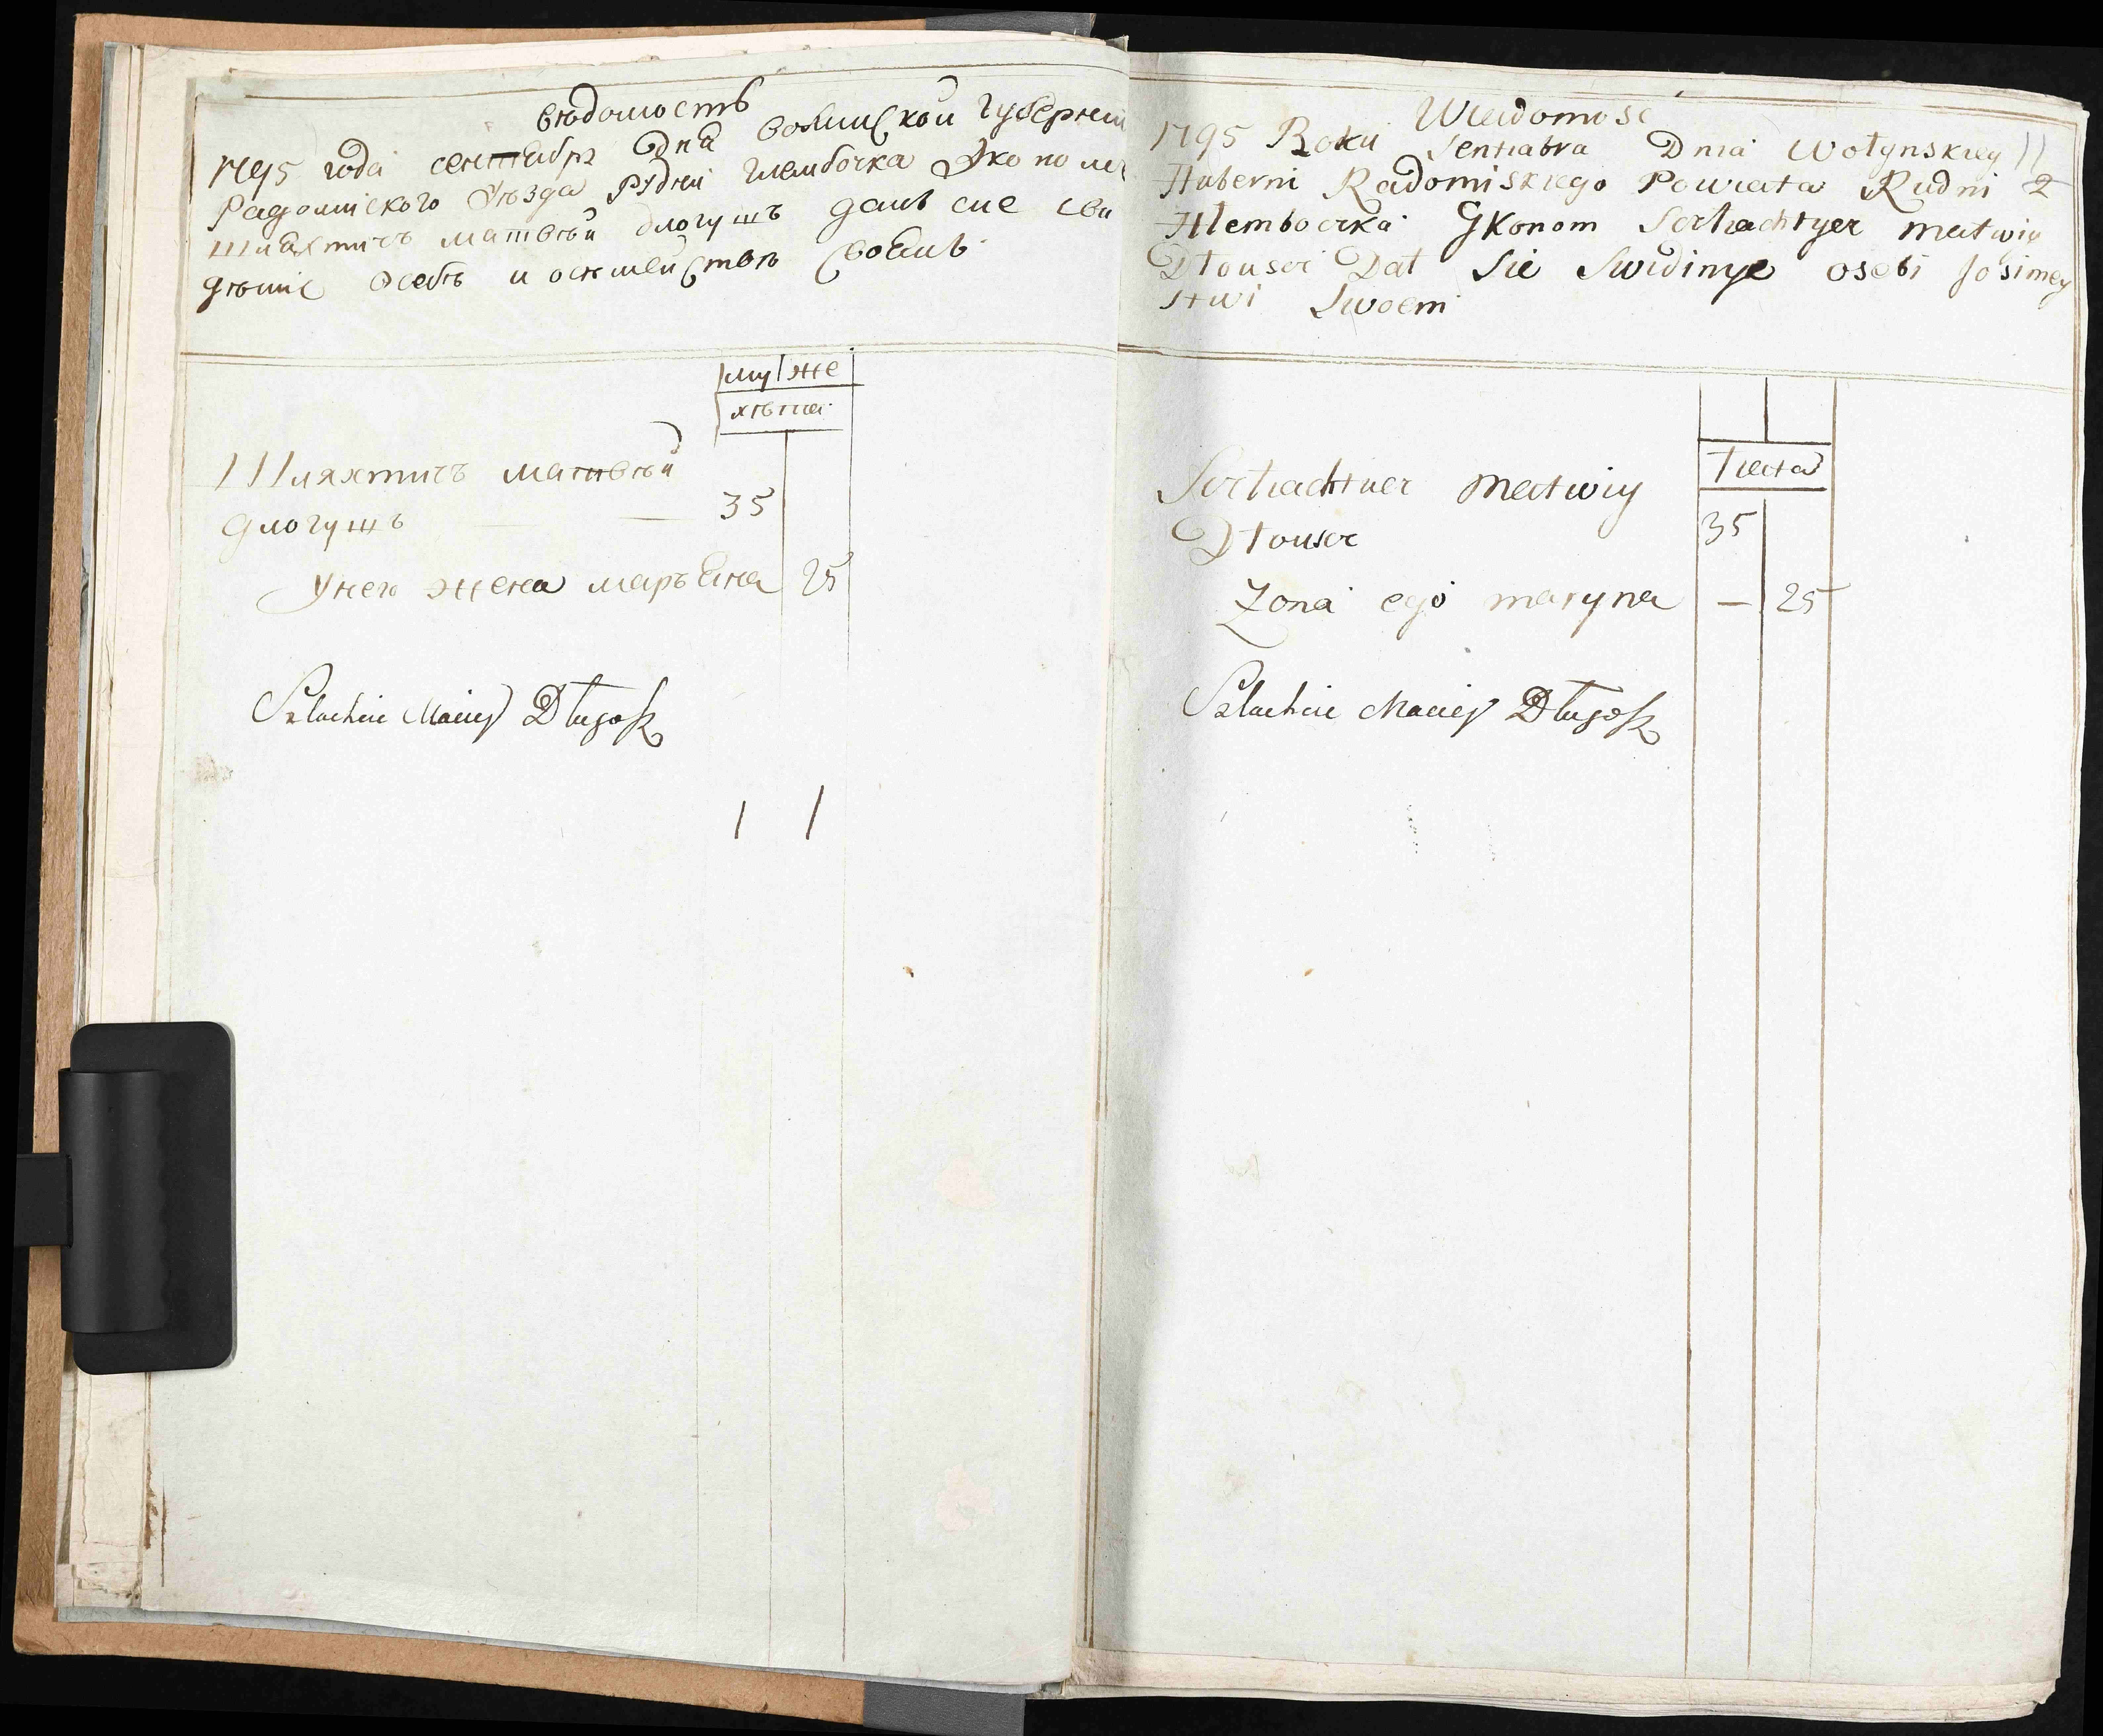 вѣдомость
1795 года сентября дня волынской губерніи
Радомиского уѣзда Рудни глембочка Эконом
шляхтичь матвѣй длогушъ далъ сие сви
дѣтис о себѣ и осѣмействѣ своемъ
му же
лѣта
Шляхтичъ матвѣй
длогушъ — — 35
Унего жена марьяна 25
Szlachcic Maciej Długosz
1 1
Wiadomosc
1795 Roku Sentiabra Dnia Wołynskiey 11
Huberni Radomiskiego Powiata Rudni 2
Hlemboczka Ekonom Szlachtyez matwiy
Dłousz Dał Sie Swidinye osebi Josimey
stwi Swoem
Lieta
Szlachtuez Matwiy
Dłousz 35
Zona ego maryna — 25
Szlachcic Maciej Długosz